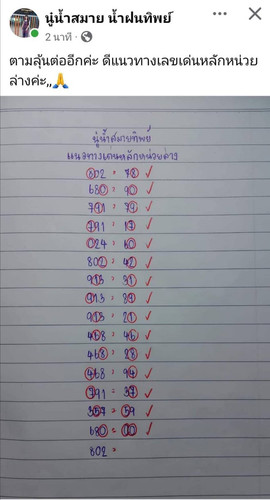 นู๋น้ำสมาย น้ำฝนทิพย์
2 นาที ·
ตามลุ้นต่ออีกค่ะ ดีแนวทางเลขเด่นหลักหน่วย
ล่างค่ะ,,🙏
นู๋น้ำสมายทิพย์
แนวทางเด่นหลักหน่วยล่าง
802 = 78 ✓
680 = 90 ✓
791 = 79 ✓
791 = 17 ✓
024 = 60 ✓
802 = 42 ✓
913 = 31 ✓
913 = 39 ✓
913 = 21 ✓
468 = 46 ✓
468 = 28 ✓
468 = 94 ✓
791 = 37 ✓
357 = 59 ✓
680 = 00 ✓
802 =